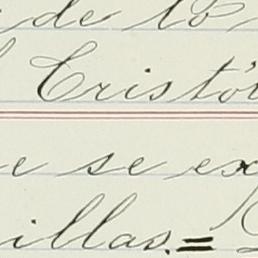 de
Cristó
e se ex
illas.=